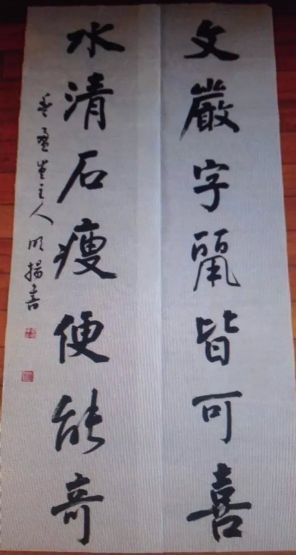 文嚴字麗皆可喜
水清石瘦便能奇
主人